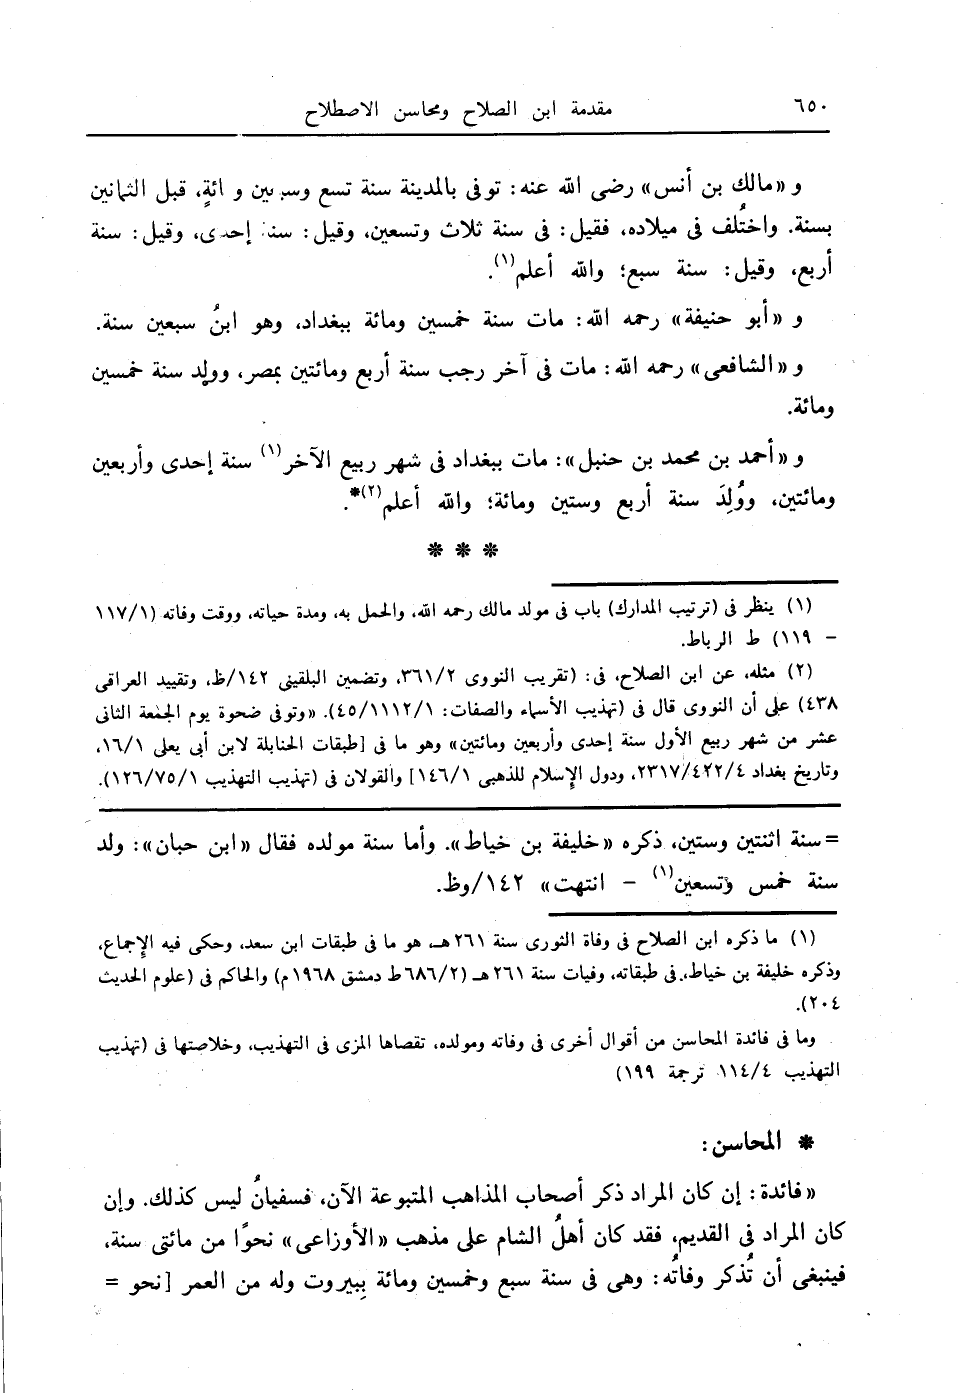 ٦٥٠ مقدمة ابن الصلاح ومحاسن الاصطلاح
و «مالك بن أنس» رضى الله عنه: توفى بالمدينة سنة تسع وسبعين و ائةٍ، قبل الثمانين
بسنة. واختُلف فى ميلاده، فقيل: فى سنة ثلاث وتسعين، وقيل: سنة إحدى، وقيل: سنة
أربع، وقيل: سنة سبع؛ والله أعلم(١).
و «أبو حنيفة» رحمه الله: مات سنة خمسين ومائة ببغداد، وهو ابنُ سبعين سنة.
و «الشافعى» رحمه الله: مات فى آخر رجب سنة أربع ومائتين بمصر، وولِد سنة خمسين
ومائة.
و «أحمد بن محمد بن حنبل»: مات ببغداد فى شهر ربيع الآخر(١) سنة إحدى وأربعين
ومائتين، ووُلِدَ سنة أربع وستين ومائة؛ والله أعلم(٢)*.
* * *
(١) ينظر فى (ترتيب المدارك) باب فى مولد مالك رحمه الله، والحمل به، ومدة حياته، ووقت وفاته (١١٧/١
– ١١٩) ط الرباط.
(٢) مثله، عن ابن الصلاح، فى: (تقريب النووى ٣٦١/٢، وتضمين البلقينى ١٤٢/ظ، وتقييد العراقى
٤٣٨) على أن النووى قال فى (تهذيب الأسماء والصفات: ٤٥/١١١٢/١). «وتوفى ضحوة يوم الجمعة الثانى
عشر من شهر ربيع الأول سنة إحدى وأربعين ومائتين» وهو ما فى [طبقات الحنابلة لابن أبى يعلى ١٦/١،
وتاريخ بغداد ٢٣١٧/٤٢٢/٤، ودول الإسلام للذهبى ١٤٦/١] والقولان فى (تهذيب التهذيب ١٢٦/٧٥/١).
=سنة اثنتين وستين، ذكره «خليفة بن خياط». وأما سنة مولده فقال «ابن حبان»: ولد
سنة خمس وتسعين(١) – انتهت» ١٤٢/وظ.
(١) ما ذكره ابن الصلاح فى وفاة الثورى سنة ٢٦١هـ، هو ما فى طبقات ابن سعد، وحكى فيه الإجماع،
وذكره خليفة بن خياط، فى طبقاته، وفيات سنة ٢٦١ هـ (٦٨٦/٢ط دمشق ١٩٦٨م) والحاكم فى (علوم الحديث
٢٠٤).
وما فى فائدة المحاسن من أقوال أخرى فى وفاته ومولده، تقصاها المزى فى التهذيب، وخلاصتها فى (تهذيب
التهذيب ١١٤/٤ ترجمة ١٩٩)
* المحاسن:
«فائدة: إن كان المراد ذكر أصحاب المذاهب المتبوعة الآن، فسفيانُ ليس كذلك. وإن
كان المراد فى القديم، فقد كان أهلُ الشام على مذهب «الأوزاعى» نحوًا من مائتى سنة،
فينبغى أن تُذكر وفاتُه: وهى فى سنة سبع وخمسين ومائة بِبيروت وله من العمر [نحو =